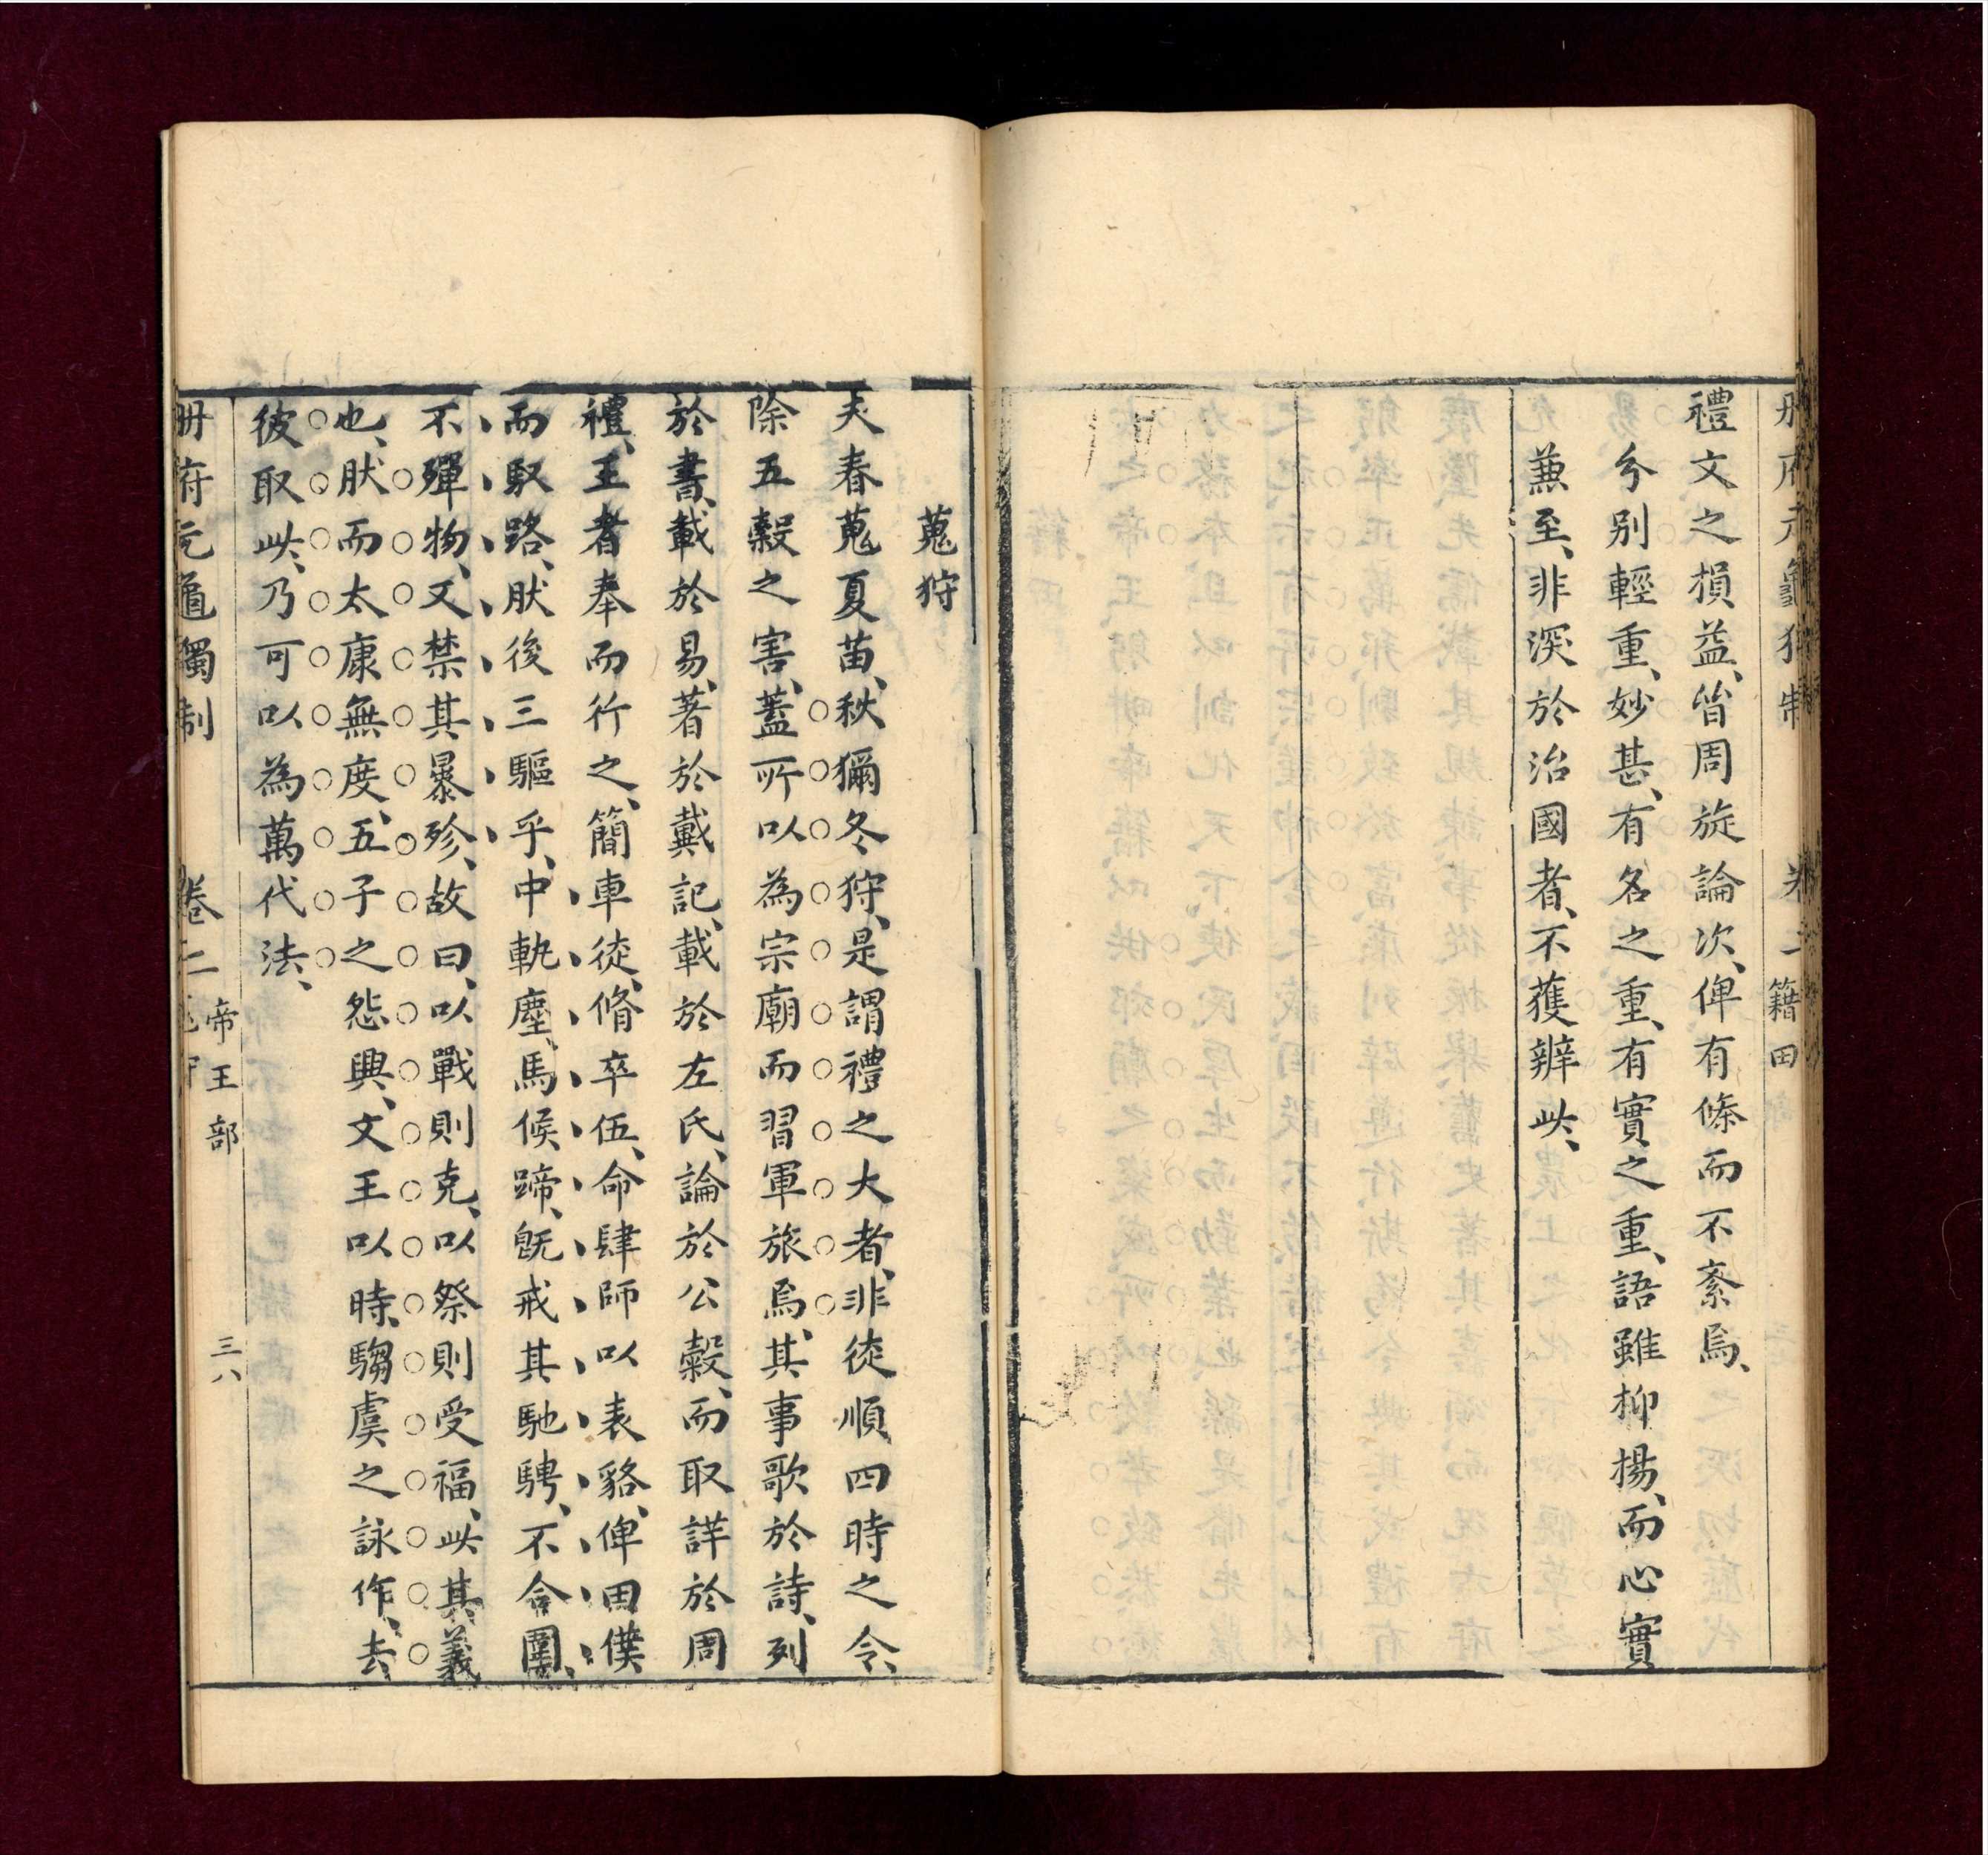 禮文之損益、皆周旋論次、俾有條而不紊焉、
兮别輕重、妙甚、有名之重、有實之重、語雖抑揚、而心實
兼至、非深於治國者、不獲辨此、
籍田
蒐狩
夫春蒐夏苗、秋獮冬狩、是謂禮之大者、非徒順四時之令、
除五穀之害、蓋所以為宗廟而習軍旅焉、其事歌於詩、列
於書、載於易、著於戴記、載於左氏、論於公穀、而取詳於周
禮、王者奉而行之、簡車徒、脩卒伍、命肆師以表貉、俾田僕
而馭路、肰後三驅乎、中軌塵、馬候蹄、旣戒其馳騁、不合圍、
不殫物、又禁其暴殄、故曰、以戰則克、以祭則受福、此其義
也、肰而太康無度、五子之怨興、文王以時、騶虞之詠作、去
彼取此、乃可以為萬代法、
册府元龜獨制 卷二 帝王部 三八